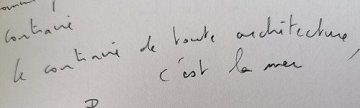 contraire
le contraire de toute architecture,
c'est la mer